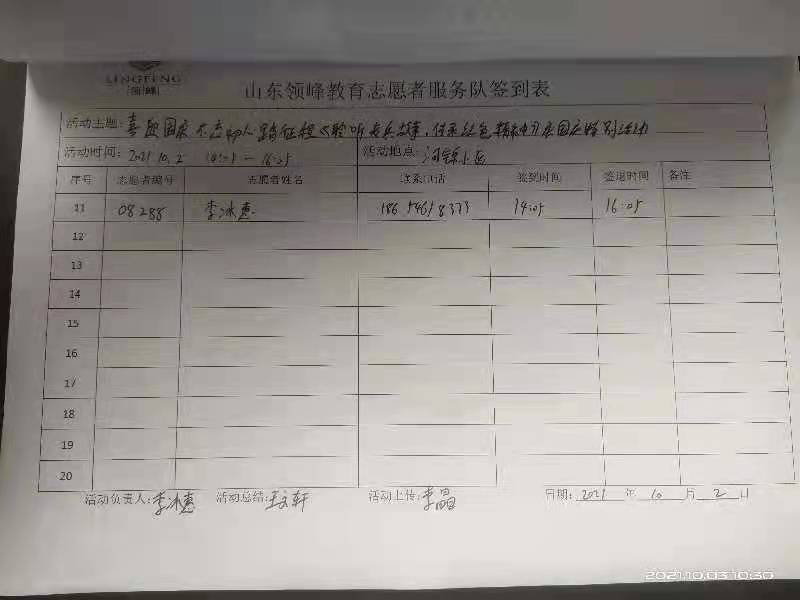 LINGFENG
领峰
山东领峰教育志愿者服务队签到表
活动主题: 喜迎国庆 不忘初心 踏征程 聆听老兵故事, 传承红色精神 庆国庆特别活动
活动时间: 2021.10.2 14:05 — 16:05 活动地点: 小区
序号 志愿者编号 志愿者姓名 联系电话 签到时间 签退时间 备注
11 08288 李冰惠 14:05 16:05
12
13
14
15
16
17
18
19
20
活动负责人: 李冰惠 活动总结: 王文轩 活动上传: 李晶 日期: 2021 年 10 月 2 日
2021.10.03 10:30